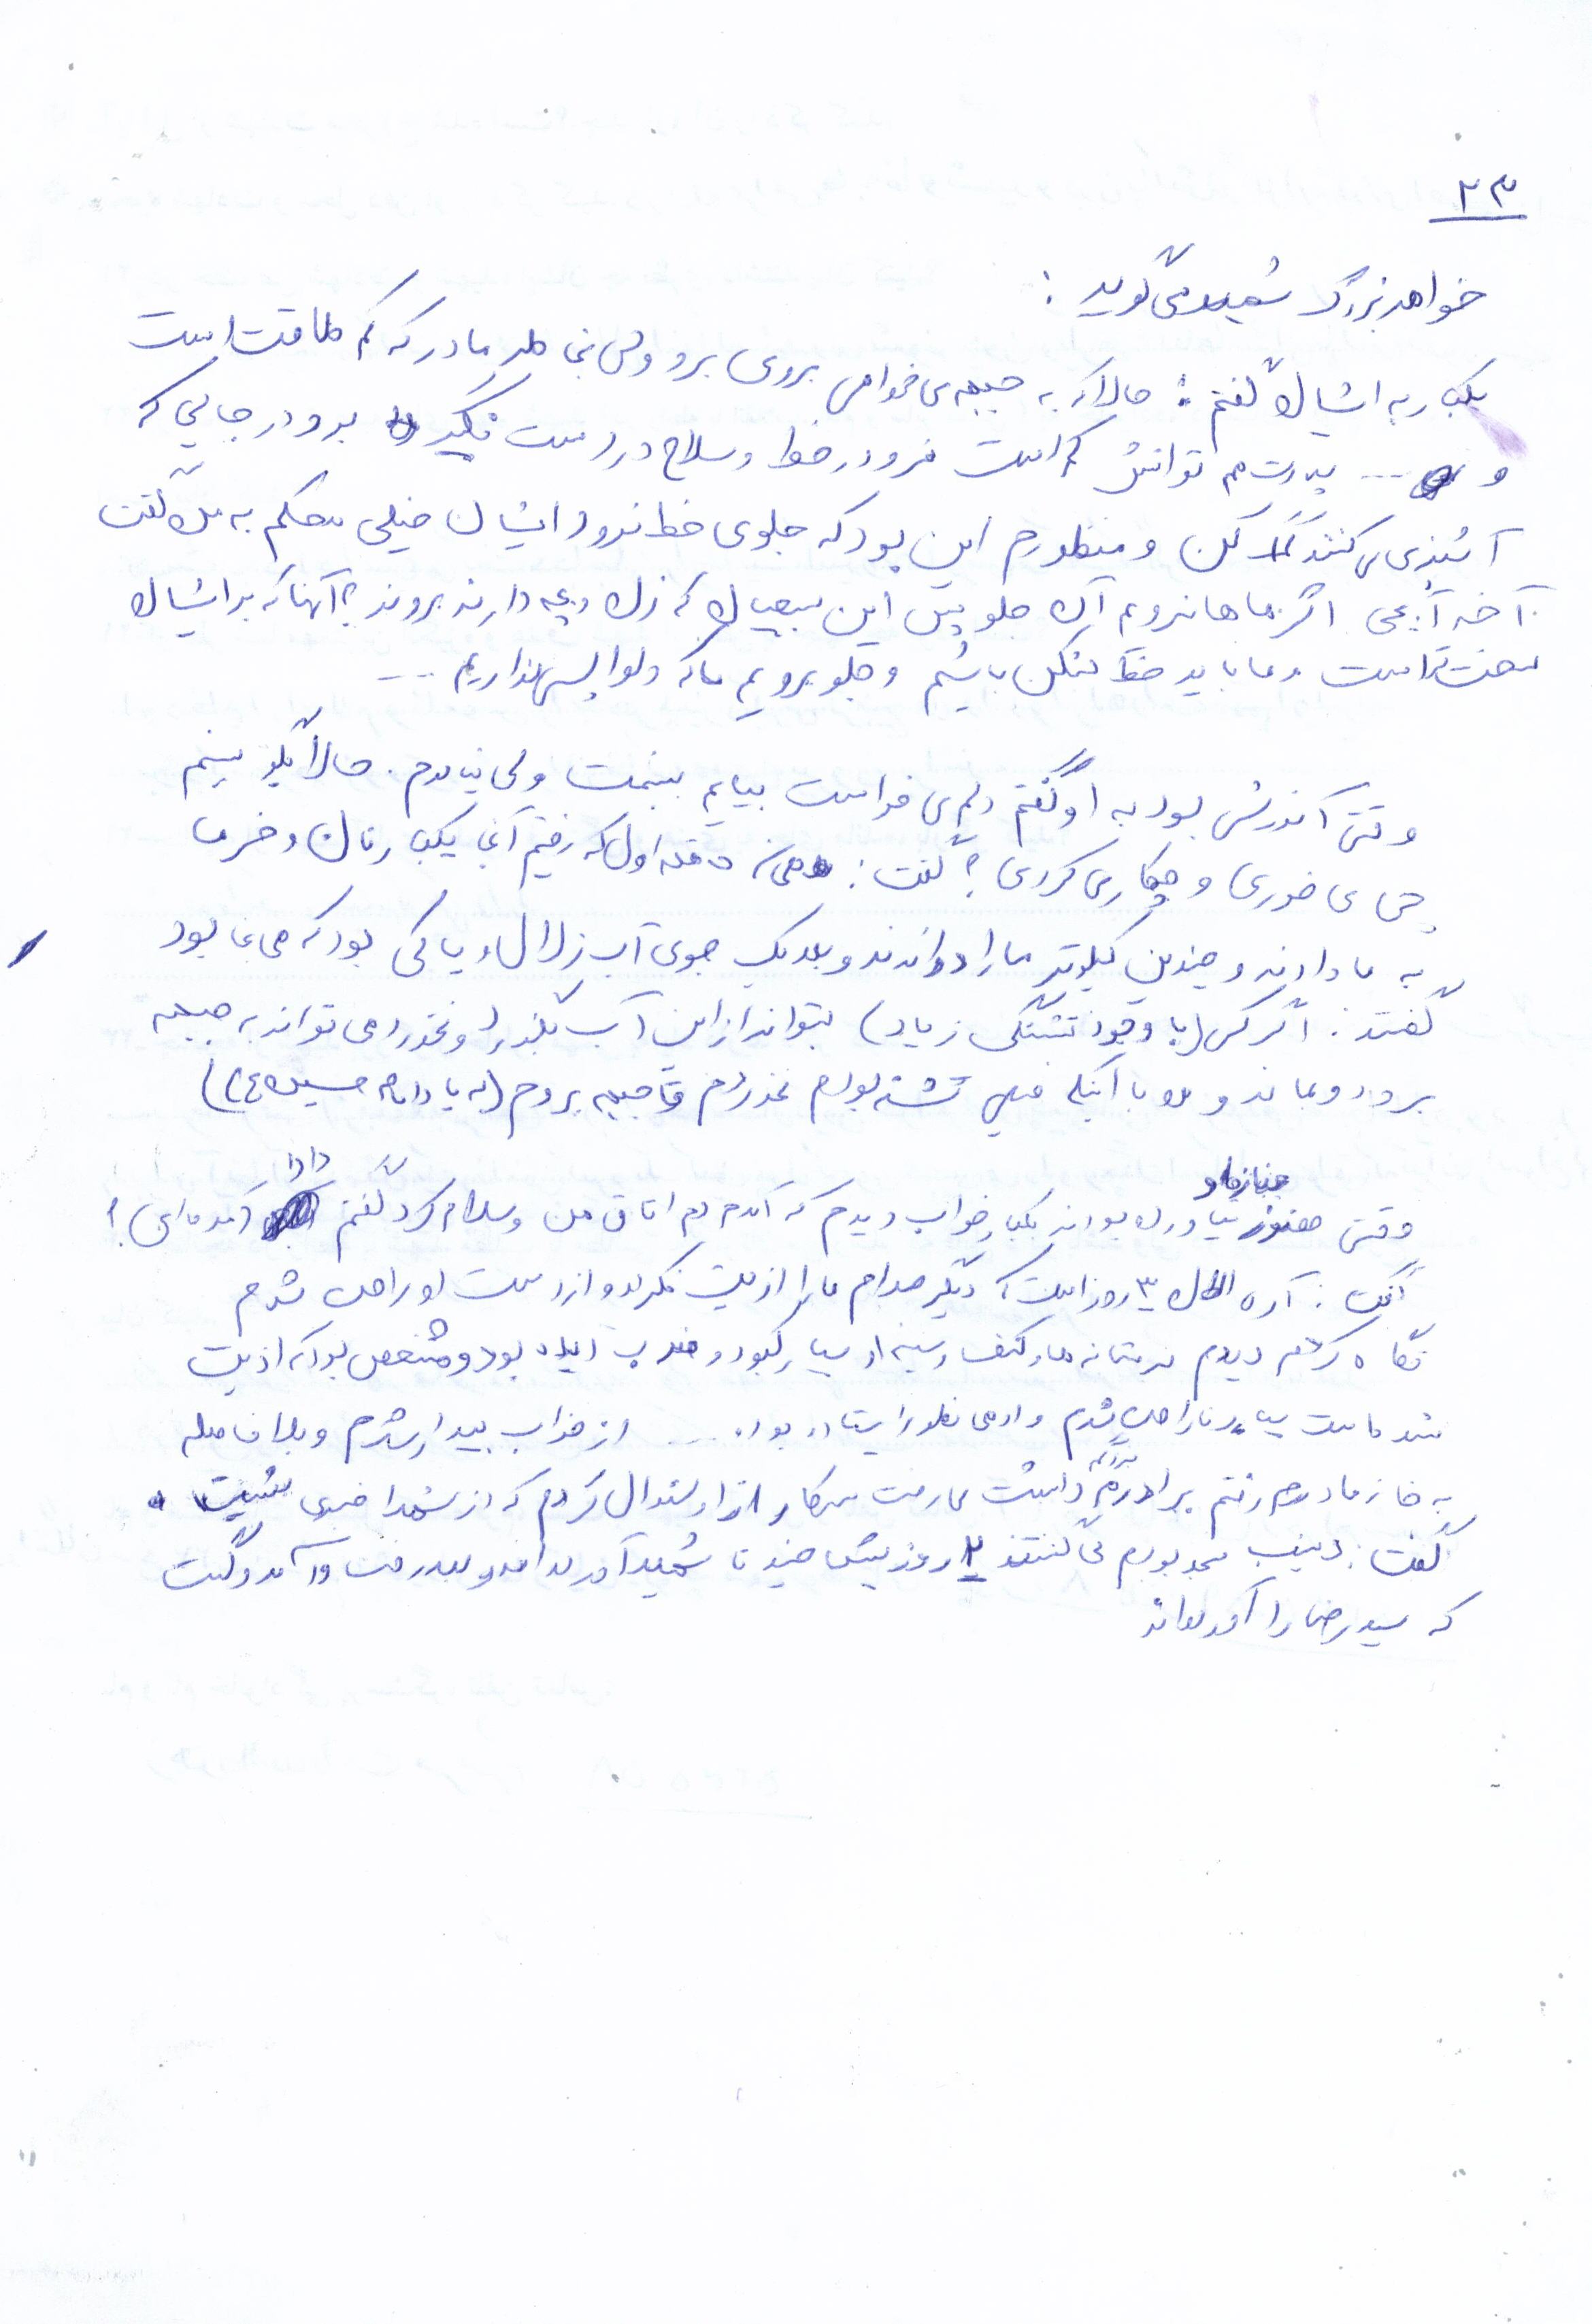 ۲۳
خواهر بزرگ شهید می گوید :
یکبار به ایشان گفتم : حالا که به جبهه می خواهی بروی برو ولی بخاطر مادر که کم طاقت است
و ... پدرت هم توانش کم است نرو در خط و سلاح در دست نگیر برو در جایی که
آشپزی می کنند کمک کن و منظورم این بود که جلوی خط نرود ایشان خیلی محکم به من گفت
: آخه آبجی اگر ماها نرویم آن جلو پس این که زن و بچه دارند بروند ؟ آنها که برایشان
سخت تر است و ما باید باشیم و جلو برویم ما که دلواپسی نداریم ...
وقتی آموزشی بود به او گفتم دلم می خواست بیایم ببینمت ولی نیامدم . حالا بگو ببینم
چی می خوری و چکار می کردی ؟ گفت : دفعه اول که رفتیم آنجا یکبار نان و خرما
به ما دادند و چندین کیلومتر ما را دواندند و بعد یک جوی آب زلال و پاکی بود که بما بود
گفتند : اگر کسی (با وجود تشنگی زیاد) بتواند از این آب بگذرد و نخورد می تواند به جبهه
برود و بماند و من با اینکه خیلی تشنه بودم نخوردم تا جبهه بروم (به یاد امام حسین (ع))
وقتی هنوز جنازه او نیاورده بودند یکبار خواب دیدم که آمد دم اتاق من و سلام کرد گفتم دادا آمده ای ؟!
گفت : آره الان ۳ روز است که دیگر صدام ما را اذیت نکرده و از دست او راحت شدم
نگاه کردم دیدم سرشانه ها و کتف و سینه او بسیار کبود و ضرب دیده بود و مشخص بود که اذیت
شده است بسیار ناراحت شدم و او همانطور ایستاده بود .... از خواب بیدار شدم و بلافاصله
به خانه مادرم رفتم برادرم داشت می رفت سرکار از او سئوال کردم که از شهدا خبری نیست
گفت : دیشب مسجد بودم می گفتند ۲ روز پیش چند تا شهید آورده اند و بعد رفت و آمد و گفت
که سید رضا را آورده اند